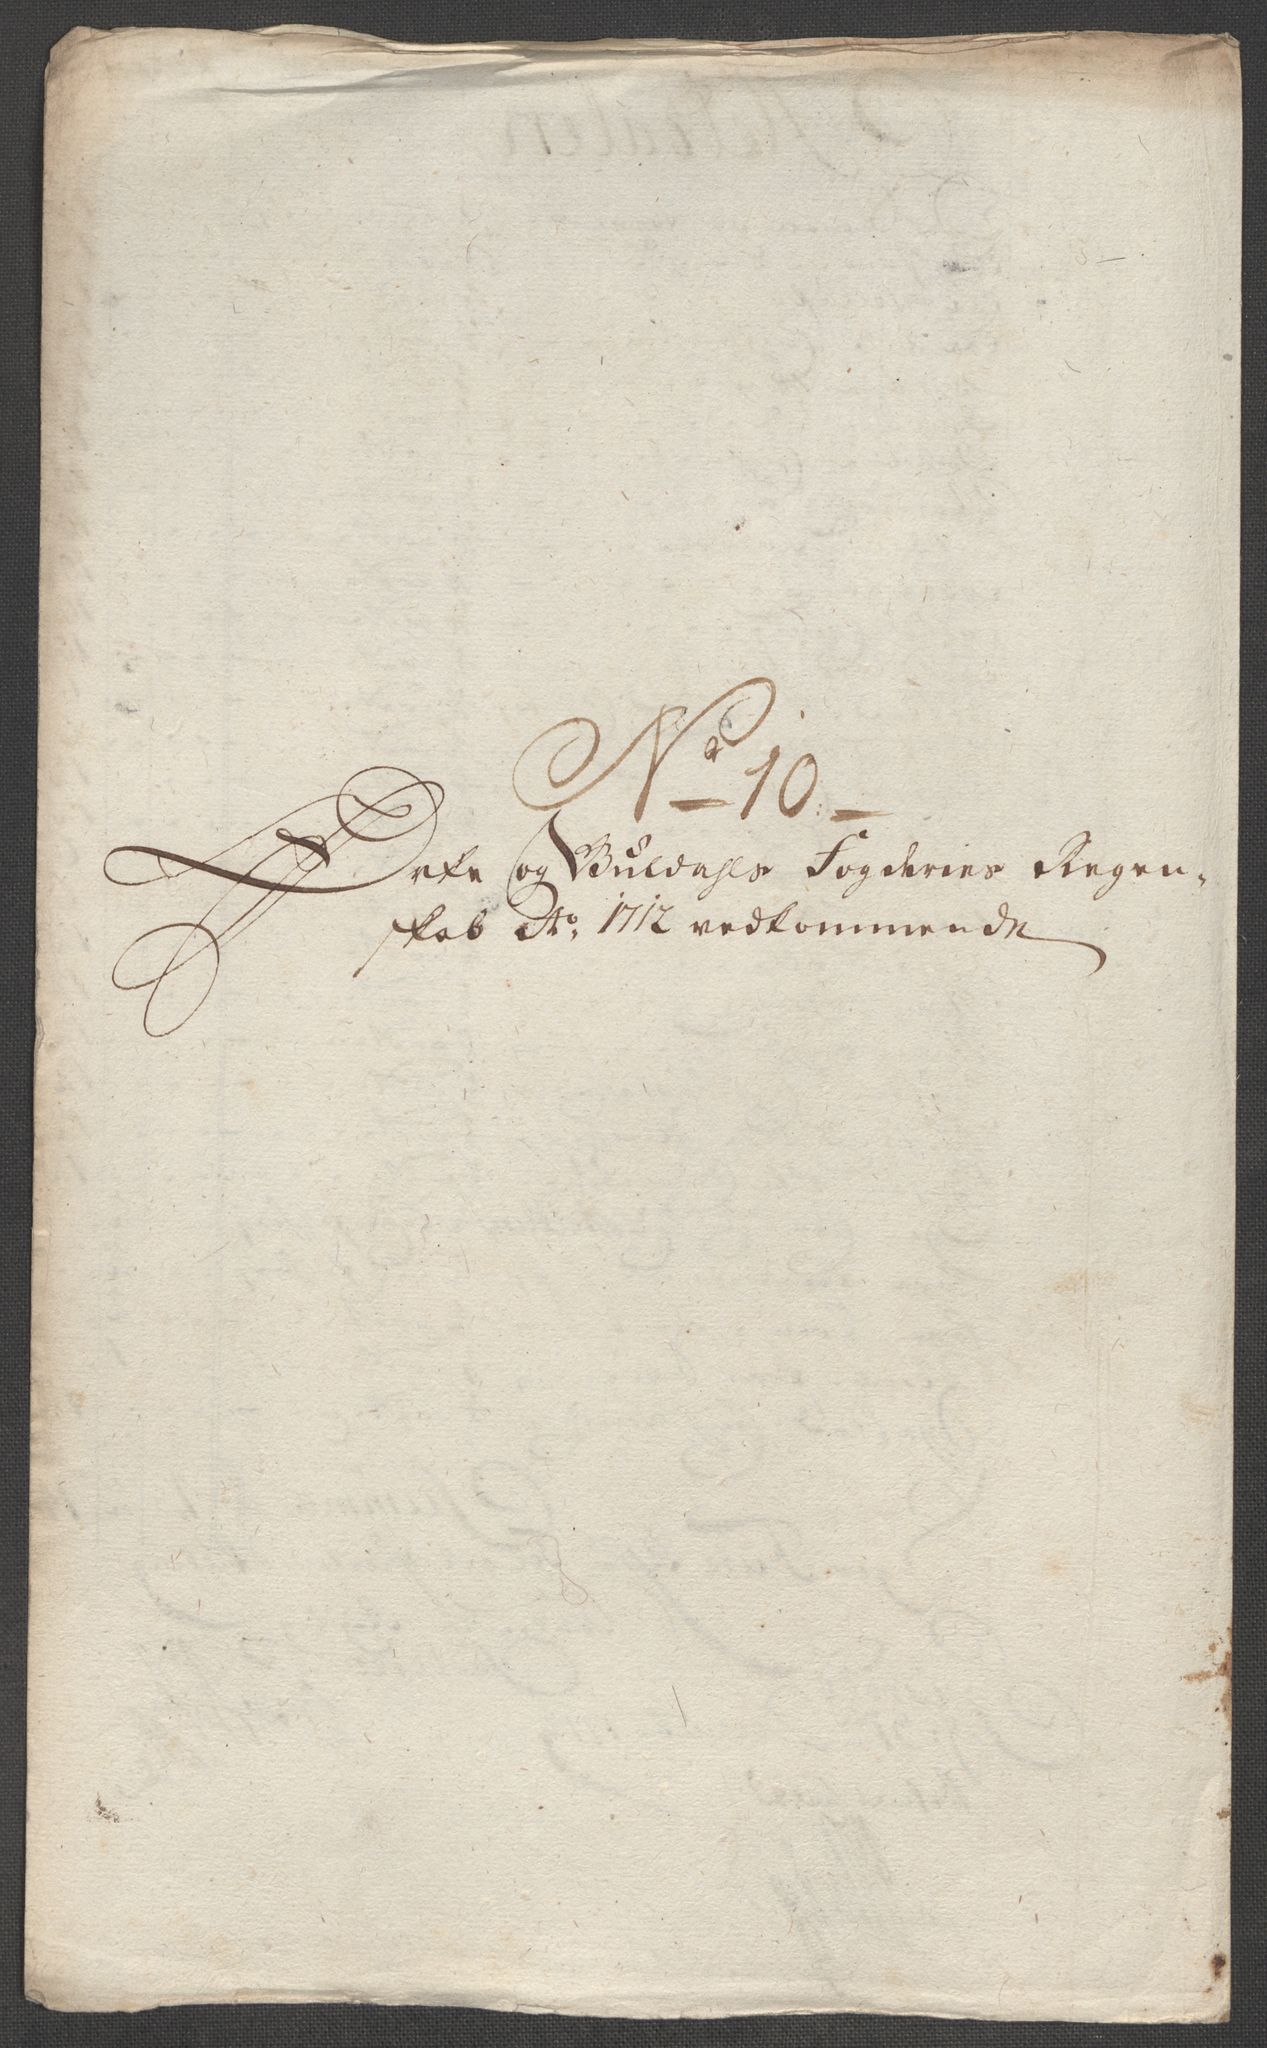 No 10.
Orke og Guldahls Fogderies Regen-
skab Ao. 1712 vedkommende